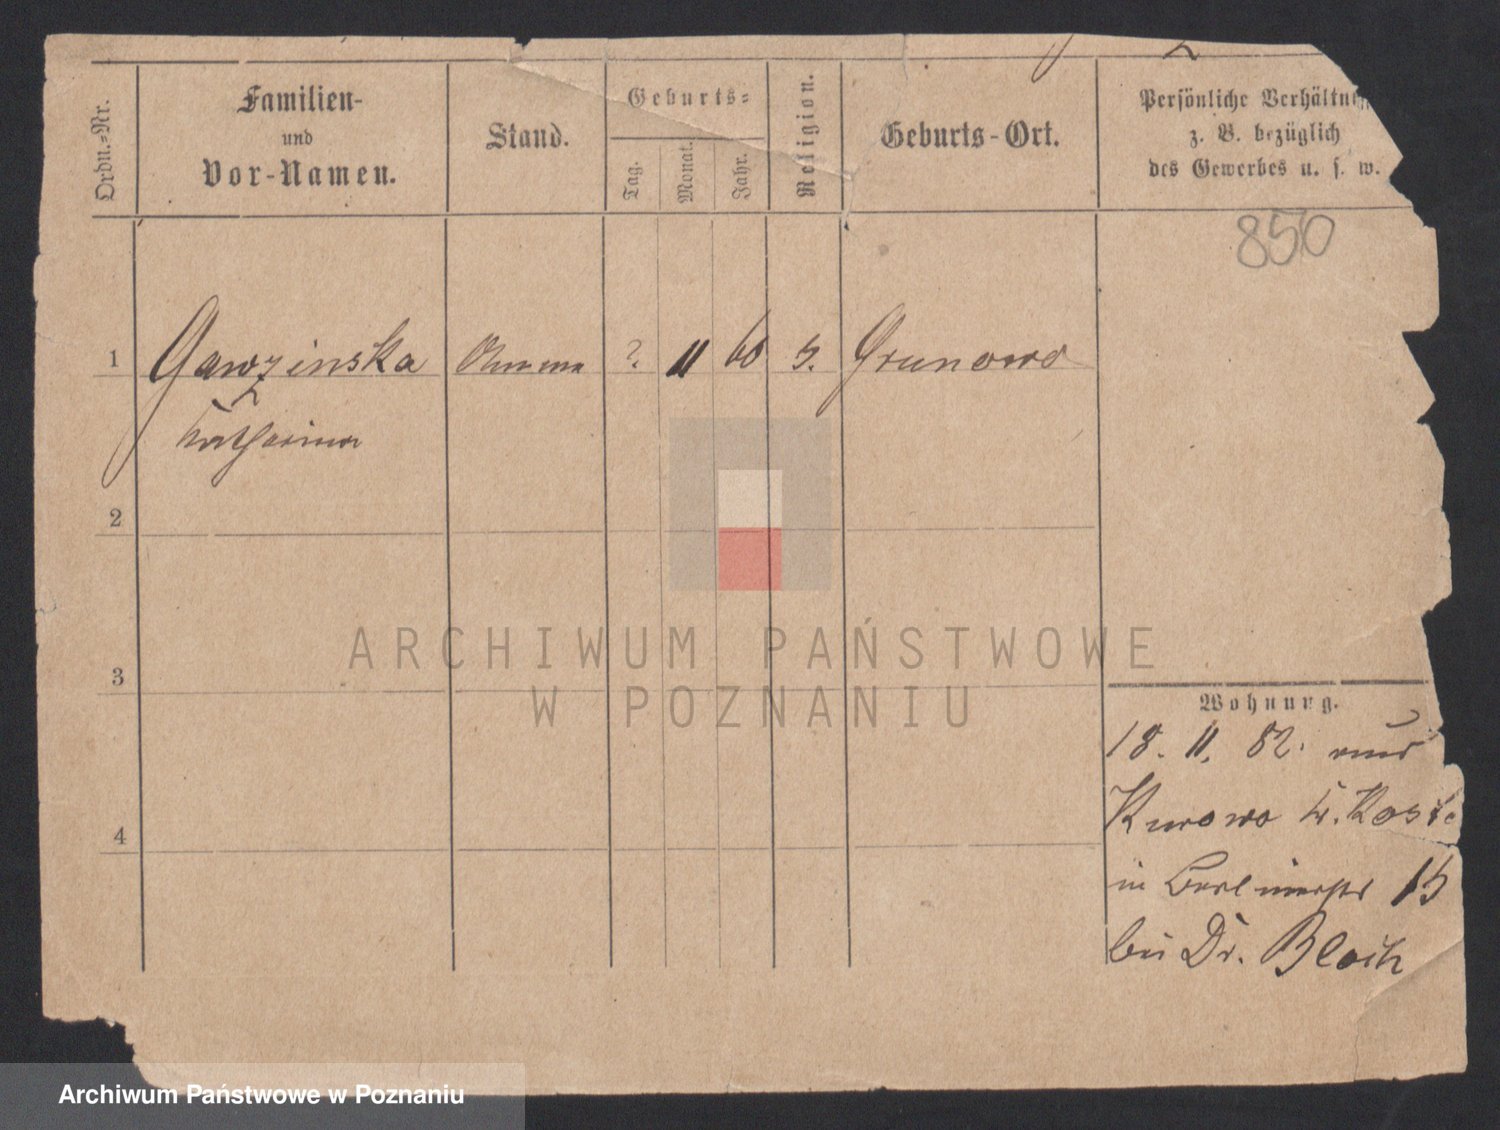 Ordn.-Nr.
Familien-
und
Vor-Namen.
Stand.
Geburts-
Tag.
Monat.
Jahr.
Religion.
Geburts-Ort.
Persönliche Verhältni
z. B. bezüglich
des Gewerbes u. s. w.
850
1 Gawzinska Amme ? 11 60 Grunowo
Katharina
2
3
4
Wohnung.
18. 11. 82. aus
Kurowo Kr. Koste
in Berlinerstr 15
bei Dr. Bloch
ARCHIWUM PAŃSTWOWE
W POZNANIU
Archiwum Państwowe w Poznaniu